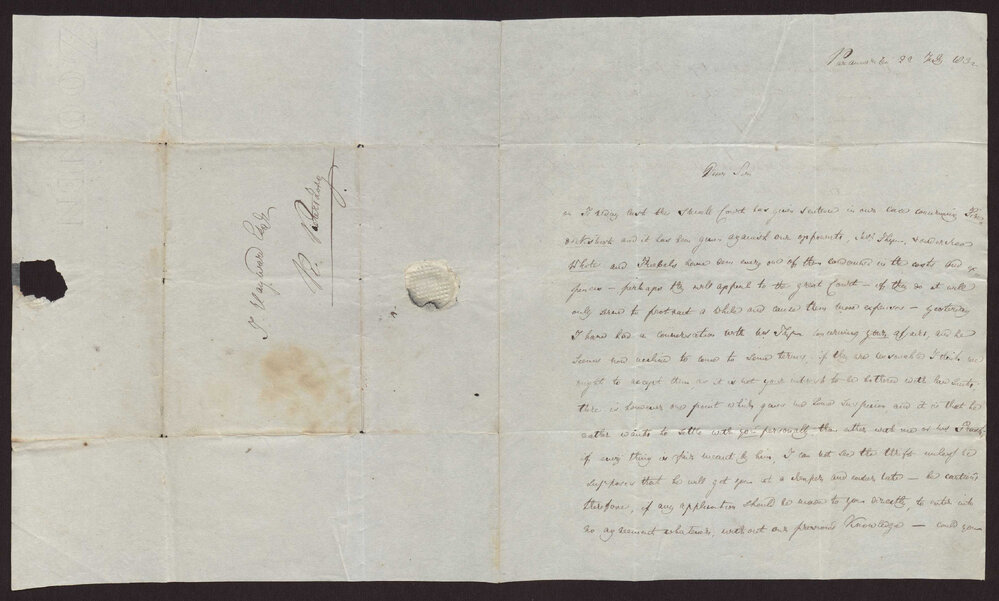 Paramaribo 22 Feb 1832
Dear Sir
on Friday last the Small Court has given sentence in our case concerning
and it has been given against our opponents,
White and have been every one of them condemned in the costs and ex
pences — perhaps they will appeal to the great Court — if they do it will
only serve to protract a while and cause them more expences — yesterday
I have had a conversation with concerning your affairs, and he
seems now incline to come to some terms, if they are reasonable I think we
ought to accept them as it is not your interest to be bothered with law suits,
there is however one point which gives me some suspicion and it is that he
rather wants to settle with you personally than either with me or
if every thing is fair meant by him, I can not see the unless he
supposes that he will get you at a — be cautious
therefore, if any application should be made to you directly, to enter into
no agreement whatever, without our previous Knowledge — could you
J. Hayward Esq
N. Rotterdam